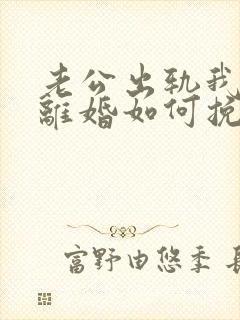 老公出轨我
離婚如何挽
富野由悠季